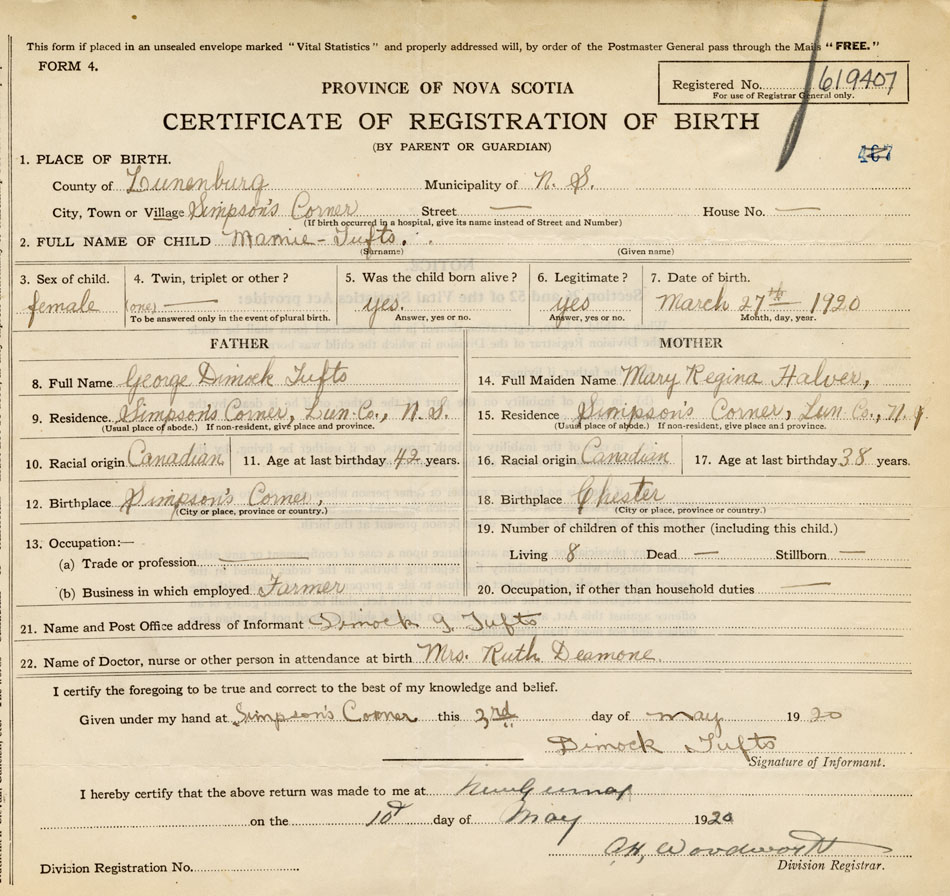 This form if placed in an unsealed envelope marked "Vital Statistics" and properly addressed will, by order of the Postmaster General pass through the Mails "FREE."
FORM 4.
PROVINCE OF NOVA SCOTIA
Registered No. 619407
For use of Registrar General only.
CERTIFICATE OF REGISTRATION OF BIRTH
(BY PARENT OR GUARDIAN)
467
1. PLACE OF BIRTH.
County of Lunenburg Municipality of N. S.
City, Town or Village Simpson's Corner Street — House No. —
(If birth occurred in a hospital, give its name instead of Street and Number)
2. FULL NAME OF CHILD Mamie - Tufts.
(Surname) (Given name)
3. Sex of child. 4. Twin, triplet or other? 5. Was the child born alive? 6. Legitimate? 7. Date of birth.
female (one) — yes. yes March 27th 1920
To be answered only in the event of plural birth. Answer, yes or no. Answer, yes or no. Month, day, year.
FATHER MOTHER
8. Full Name George Dimock Tufts 14. Full Maiden Name Mary Regina Halver,
9. Residence. Simpson's Corner, Lun. Co., N. S. 15. Residence Simpson's Corner, Lun. Co., N.
(Usual place of abode.) If non-resident, give place and province. (Usual place of abode.) If non-resident, give place and province.
10. Racial origin Canadian 11. Age at last birthday 42 years. 16. Racial origin Canadian 17. Age at last birthday 38 years.
12. Birthplace Simpson's Corner, 18. Birthplace Chester
(City or place, province or country.) (City or place, province or country.)
19. Number of children of this mother (including this child.)
13. Occupation:—
Living 8 Dead — Stillborn —
(a) Trade or profession —
(b) Business in which employed Farmer 20. Occupation, if other than household duties —
21. Name and Post Office address of Informant Dimock G Tufts
22. Name of Doctor, nurse or other person in attendance at birth Mrs. Ruth Deamone.
I certify the foregoing to be true and correct to the best of my knowledge and belief.
Given under my hand at Simpson's Corner this 3rd day of May 1920
Dimock Tufts
Signature of Informant.
I hereby certify that the above return was made to me at New Germany
on the 10th day of May 1920
A.H. Woodworth
Division Registration No. Division Registrar.